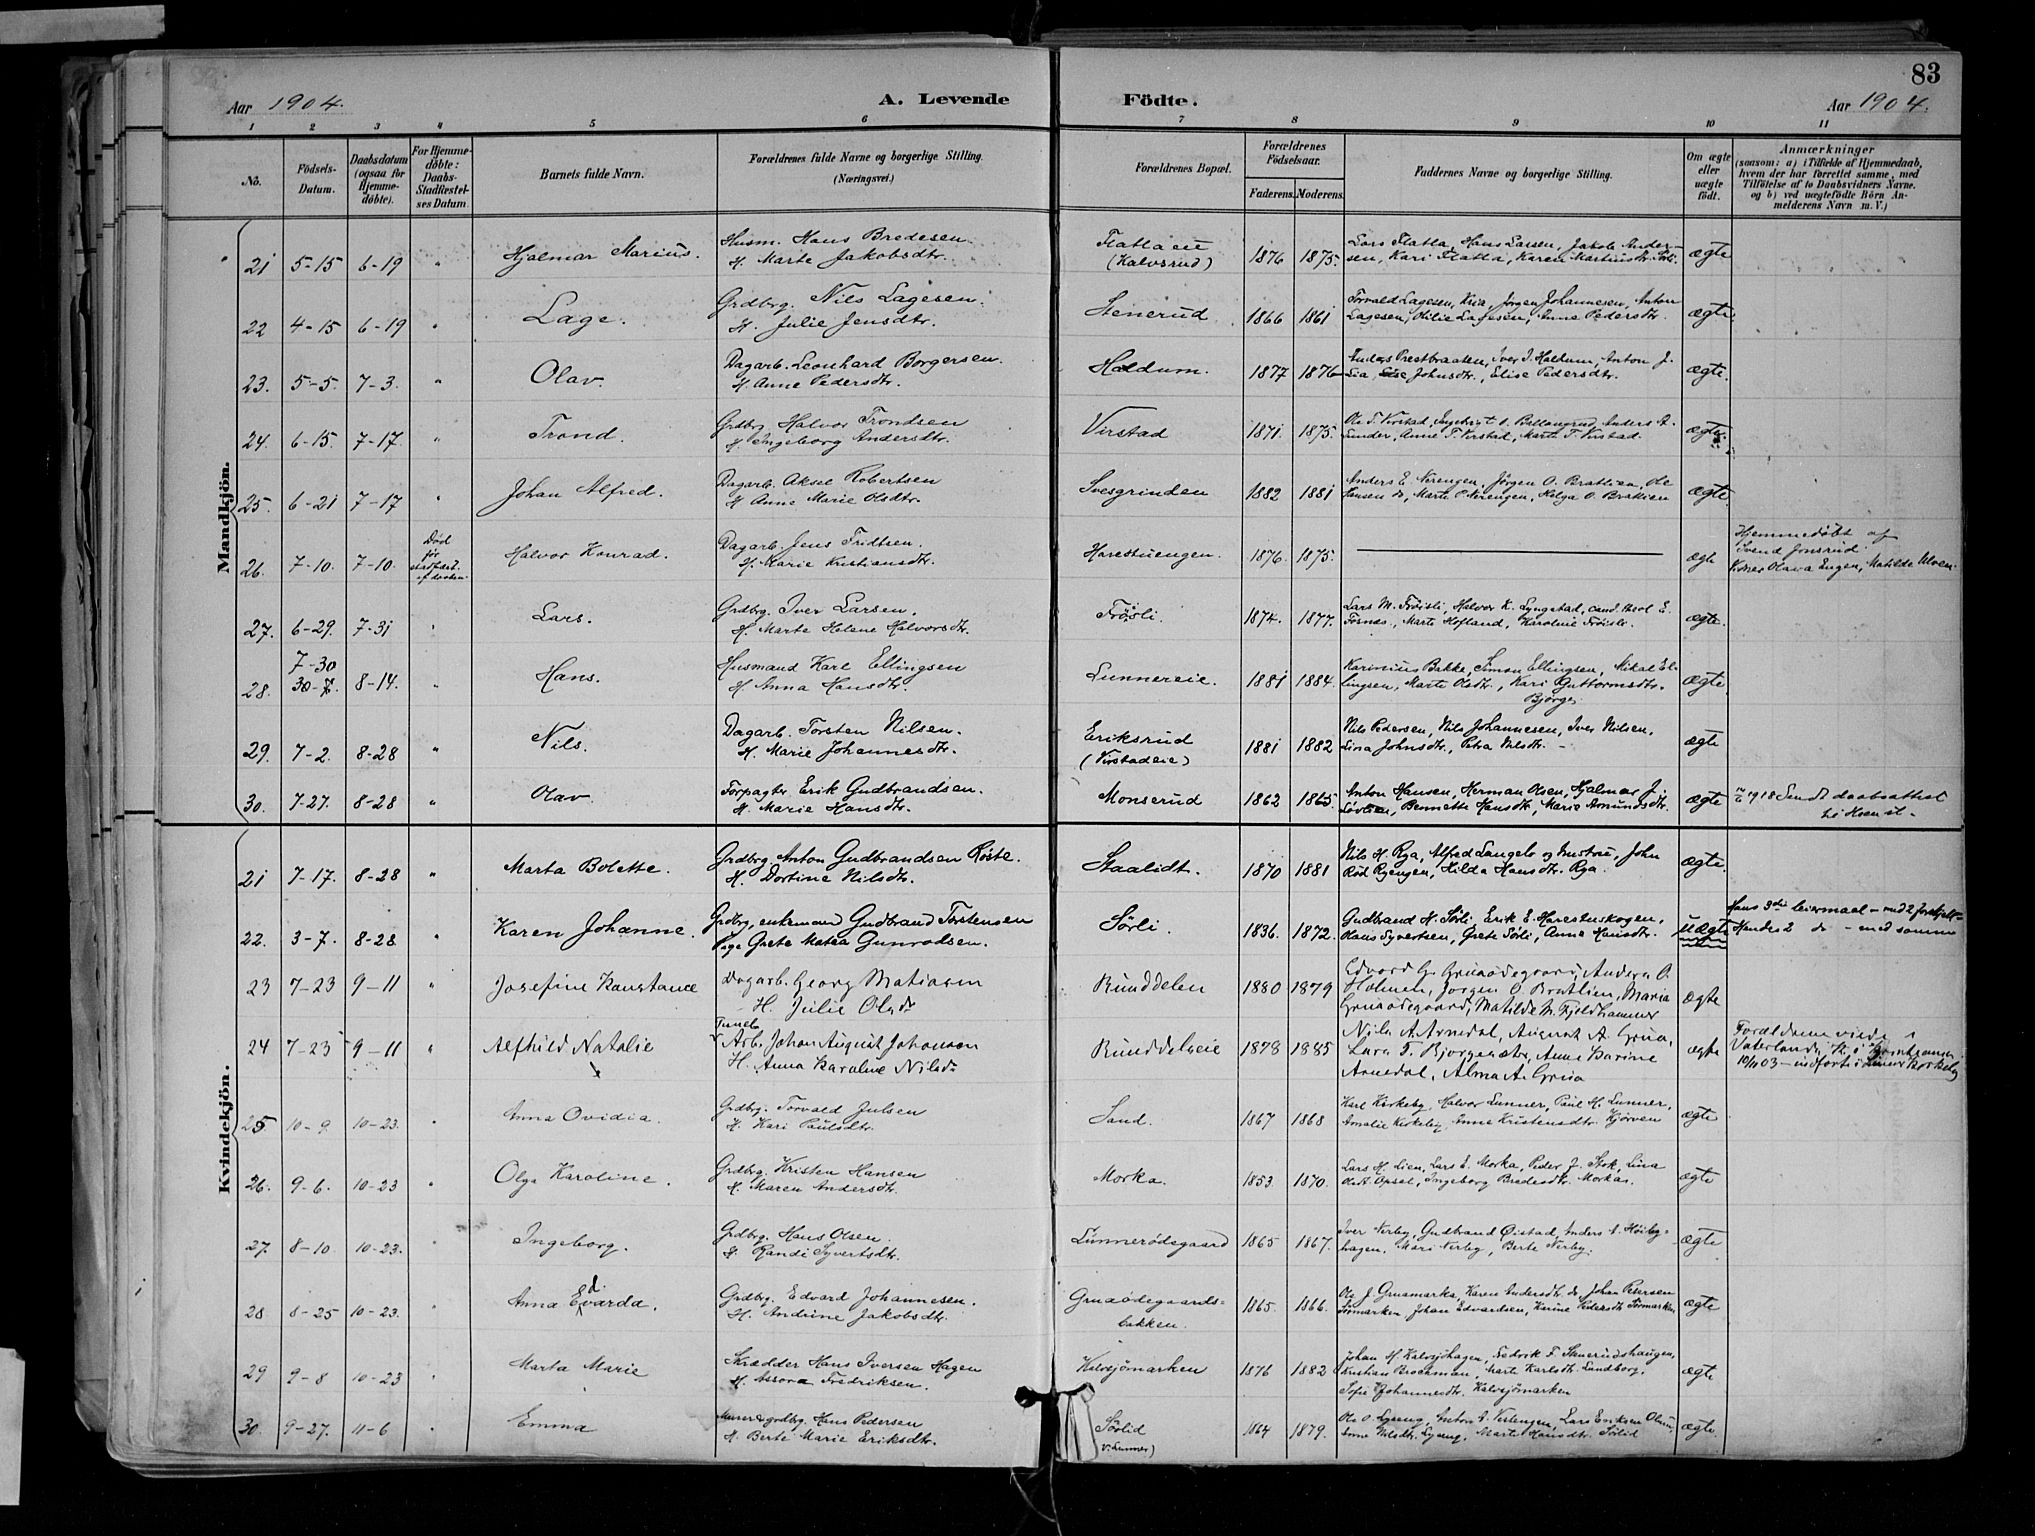 83
Aar 1904.
A. Levende Födte.
Aar 1904.
1 2 3 4 5 6 7 8 9 10 11
No.
Födsels-Datum.
Daabsdatum (ogsaa for Hjemme-döbte).
For Hjemme-döbte: Daabs-Stadfæstel-ses Datum.
Barnets fulde Navn.
Forældrenes fulde Navne og borgerlige Stilling. (Næringsvei.)
Forældrenes Bopæl.
Forældrenes Födselsaar.
Faderens. Moderens.
Faddernes Navne og borgerlige Stilling.
Om ægte eller uægte født.
Anmærkninger
(saasom: a) i Tilfælde af Hjemmedaab, hvem der har forrettet samme, med Tilføielse af to Daabsvidners Navne. og b) ved uægtefödte Börn An-melderens Navn m. V.)
Mandkjön.
21 5-15 6-19 " Hjalmar Marius. Husm. Hans Bredesen. H. Marte Jakobsdtr. Flatlaeie (Kalvsrud) 1876 1875. Lars Flatla, Hans Larsen, Jakob Ander-sen, Kari Flatla, Karen Martinsdtr. ægte
22 4-15 6-19 " Lage. Grdbrg. Nils Lagesen. H. Julie Jensdtr. Stenerud 1866 1861 Torvald Lagesen, Jørgen Johannesen, Anton Lagesen, Lagesen, Anne Pedersdtr. ægte.
23. 5-5. 7-3. " Olav. Dagarb. Leonhard Borgersen. H. Anne Pedersdtr. Haldum. 1877 1876 Anders Prestbraaten, Iver J. Haldum, Anton J. Lia, Else Johnsdtr., Elise Pedersdtr. ægte.
24. 6-15. 7-17. " Trond. Grdbrg Halvor Trondsen H. Ingeborg Andersdtr. Virstad 1871. 1875. Ole T. Virstad, Ingebrigt O. Ballangrud, Anders A. Sunder, Anne T. Virstad, Marte T. Virstad. ægte.
25. 6-21 7-17 " Johan Alfred. Dagarb. Aksel Robertsen H. Anne Marie Olsdtr. Svesgrinden 1882 1881 Anders E. Nerengen, Jörgen O. Bratlien, Ole Hansen do, Marte Nerengen, Helga O. Bratlien ægte
26. 7-10. 7-10. Död för stadfæst. af daaben. Halvor Konrad. Dagarb. Jens Fridtsen. H. Marie Kristiansdtr. Harestuengen. 1876. 1875. ægte Hjemmedöbt af Svend Jonsrud. Vidner Olava Engen, Matilde Ulven.
27. 6-29. 7-31 " Lars. Grdbrg. Iver Larsen. H. Marte Helene Halvorsdtr. Fröisli. 1874. 1877. Lars M. Fröisli, Halvor K. Lyngstad, cand. theol E. Fosnæs, Marte Hofland, Karoline Fröisli. ægte.
28. 7-30 30-7. 8-14. " Hans. Husmand Karl Ellingsen H. Anna Hansdtr. Lunnereie. 1881 1884. Karinius Bakke, Simon Ellingsen, Mikal El-lingsen, Marte Olsdtr., Kari Guttormsdtr. Bjørge. ægte
29. 7-2. 8-28 " Nils. Dagarb. Torsten Nilsen. H. Marie Johannesdtr. Eriksrud (Virstadeie) 1881 1882 Nils Pedersen, Nils Johannesen, Iver Nilsen, Lina Johnsdtr., Petra Nilsdtr. - ægte
30. 7-27. 8-28 " Olav. Forpagter Erik Gudbrandsen. H. Marie Hansdtr. Monserud 1862 1865. Anton Hansen, Herman Olsen, Hjalmar J. Sövlien, Bennette Hansdtr., Marie Amundsdtr. ægte 1918 Sendt daabsattest
Kvindekjön.
21 7-17. 8-28 " Marta Bolette. Grdbrg. Anton Gudbrandsen Röste. H. Dortine Nilsdtr. Staalidt. 1870 1881 Nils H. Rya, Alfred Langelo og hustrue, John Röd Ryengen, Hilda Hansdtr. Rya. ægte.
22. 3-7. 8-28 " Karen Johanne. Grdbrg, enkemand Gudbrand Torstensen Pige Grete Matea Gunrodsen. Sörli. 1836. 1872. Gudbrand N. Sörli, Erik E. Harestuskogen, Olaus Syversen, Grete Sörli, Anna Hansdtr. uægte Hans 3die leiermaal - med 2 forskjell. Hendes 2 do - med samme
23 7-23 9-11 " Josefine Konstance Dagarb. Georg Matiasen H. Julie Olsdr Runddelen 1880 1879 Edvard G. Gruaödegaard, Anders O. Holmen, Jørgen O. Bratlien, Maria Gruaödegaard, Matilde M. Fjeldhammer ægte
24 7-23 9-11 " Alfhild Natalie Tunelarb. Johan August Johanson H. Anna Karoline Nilsdr Runddeleie 1878 1885 Nils A. Arnedal, August A. Grua, Lars T. Bjørgeseter, Anna Karine Arnedal, Alma A. Grua ægte Forældrene viede i Vaterlands K. i Kristiania 10/10 03 - indførte i Lunner kirkebog
25 10-9. 10-23. " Anna Ovidia. Grdbrg. Torvald Julsen H. Kari Paulsdtr. Sand. 1867 1868 Karl Kirkeby, Halvor Lunner, Paul H. Lunner, Amalie Kirkeby, Anne Kristensdtr. Kjörven ægte
26. 9-6. 10-23 " Olga Karoline. Grdbrg. Kristen Hansen H. Maren Andersdtr. Morka. 1853. 1870. Lars H. Lien, Lars E. Morka, Peder J. Stok, Lina Olsdt. Opsal, Ingeborg Bredesdtr. Morka. ægte
27. 8-10. 10-23. " Ingeborg. Grdbrg. Hans Olsen. H. Randi Syvertsdtr. Lunnerödegaard 1865 1867. Iver Nerby, Gudbrand Öistad, Anders A. Höiby-hagen, Mari Nerby, Berte Nerby. ægte
28 8-25 10-23. " Anna Edvarda. Grdbrg. Edvard Johannesen. H. Andrine Jakobsdtr. Gruaödegaards-bakken. 1865. 1866. Ole J. Gruamarka, Karen Andersdtr. do, Johan Petersen Törmarken, Johan Edvardsen, Karine Pedersdtr. Törmarken ægte
29 9-8 10-23 " Marta Marie Skrædder Hans Iversen Hagen H. Assora Fredriksen. Kalvsjömarken 1876 1882 Johan H. Kalvsjöhagen, Fredrik F. Stenerudshaugen, Kristian Brochman, Marte Karlsdtr. Lundborg, Sofie Johannesdtr. Kalvsjömarken ægte
30. 9-27. 11-6 " Emma Murer & grdbrg. Hans Pedersen H. Berte Marie Eriksdtr. Sörlid v. Lunner) 1864 1879. Ole O. Lyseng, Anton A. Vestengen, Lars Eriksen Anne Nilsdtr. Lyseng, Marte Hansdtr. Sörlid ægte.